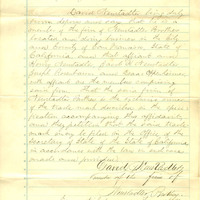 David Neustadter being duly
sworn deposes and says that he is a
member of the firm of Neustadter Brothers
located and doing business in the City
and County of San Francisco, State of
California and that affiant and
Henry Neustadter, Jacob H. Neustadter
Josiah and Isaac Oberlander
with affiant are the members composing
said firm that the said firm of
Neustadter Brothers is the exclusive owner
of the trade mark described in the speci-
fication accompanying this affidavit
and they petition that the said trade
mark may be filed in the office of the
Secretary of State of the State of California
in accordance with the law in such cases
made and provided
David Neustadter
member of the firm of
Neustadter Brothers